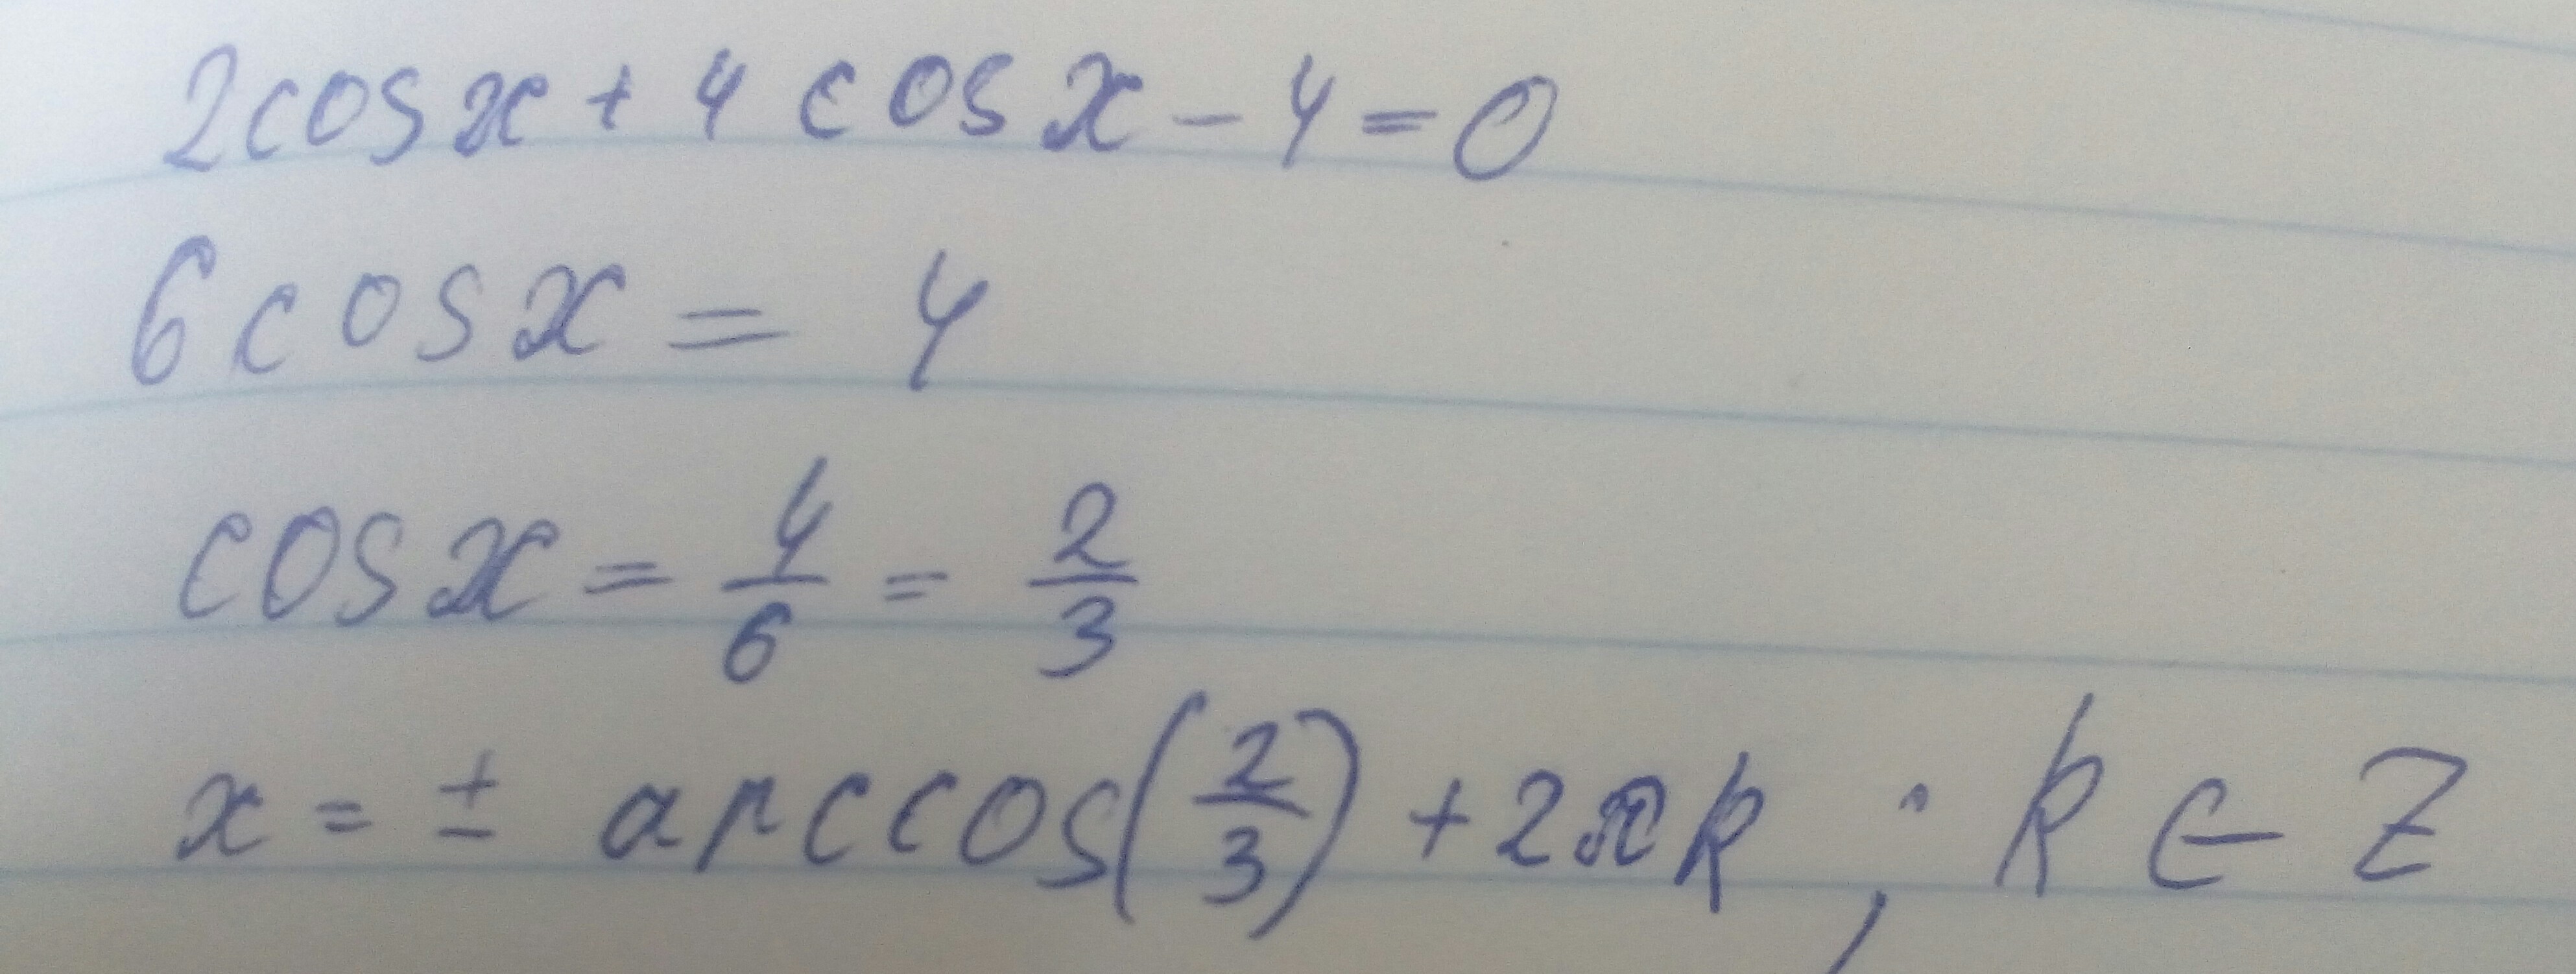 2cosx + 4 cosx - 4 = 0
6cosx = 4
cosx = 4/6 = 2/3
x = ± arccos(2/3) + 2πk ; k ∈ Z